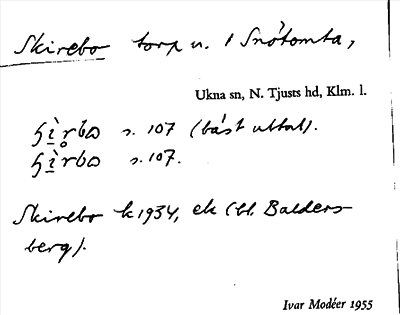 Skirebo torp u. 1 Snötomta,
Ukna sn, N. Tjusts hd, Klm. l.
s. 107 (bäst uttal).
s. 107.
Skirebo k 1934, ek (bl. Balders-
berg).
Ivar Modéer 1955